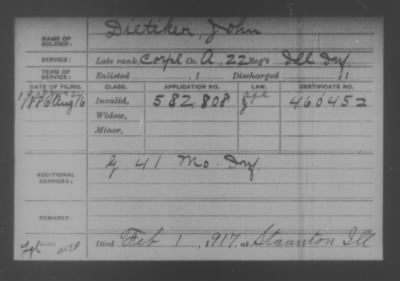 NAME OF SOLDIER: Dietiker, John
SERVICE: Late rank, Corpl Co. A, 22 Reg't Ill Inf.
TERM OF SERVICE: Enlisted , 1 Discharged , 1
DATE OF FILING. CLASS. APPLICATION NO. LAW. CERTIFICATE NO.
1886 Aug 16 Invalid, 582,808 460452
Widow,
Minor,
ADDITIONAL SERVICES: G 41 Mo. Inf.
REMARKS:
Died Feb 1, 1917, at Staunton Ill